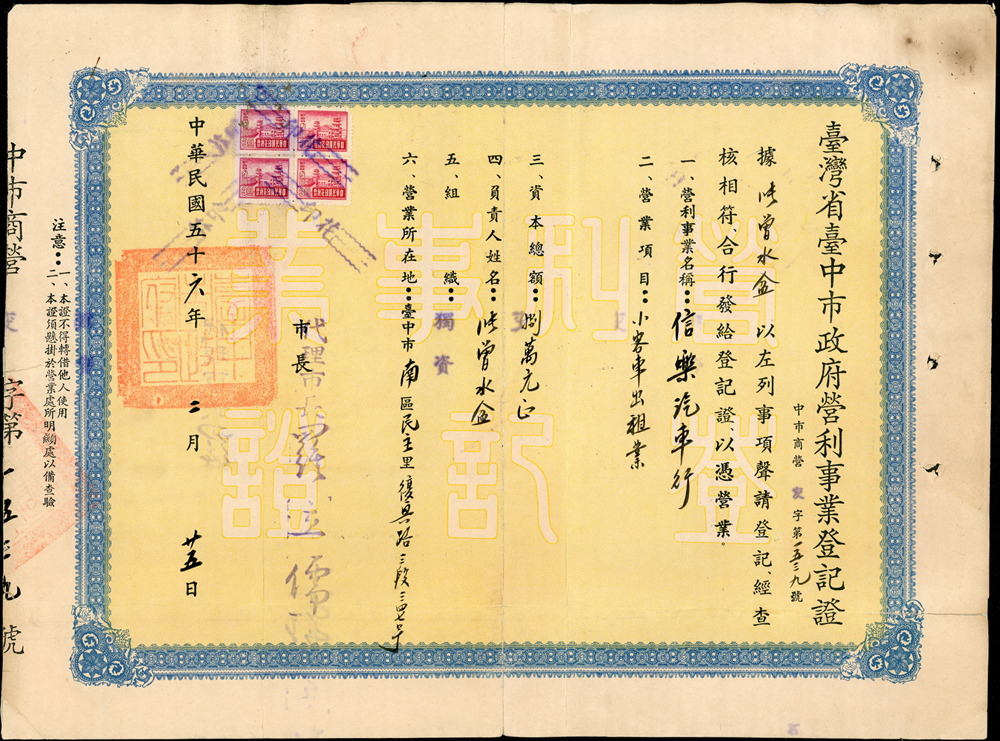 臺灣省臺中市政府營利事業登記證
中市商營 字第一五三九號
據 曾水盆 以左列事項聲請登記、經查
核相符、合行發給登記證、以憑營業。
一、營利事業名稱：信樂汽車行
二、營業項目：小客車出租業
三、資本總額：捌萬元正
四、負責人姓名： 曾水盆
五、組織：獨資
六、營業所在地：臺中市南區民主里復興路三段三四七号
代理市長羅
市長
中華民國五十六年 二月 廿五日
注意：一、本證不得轉借他人使用
二、本證須懸掛於營業處所明顯處以備查驗
中市商營 字第一五三九號
營利事業
登記證